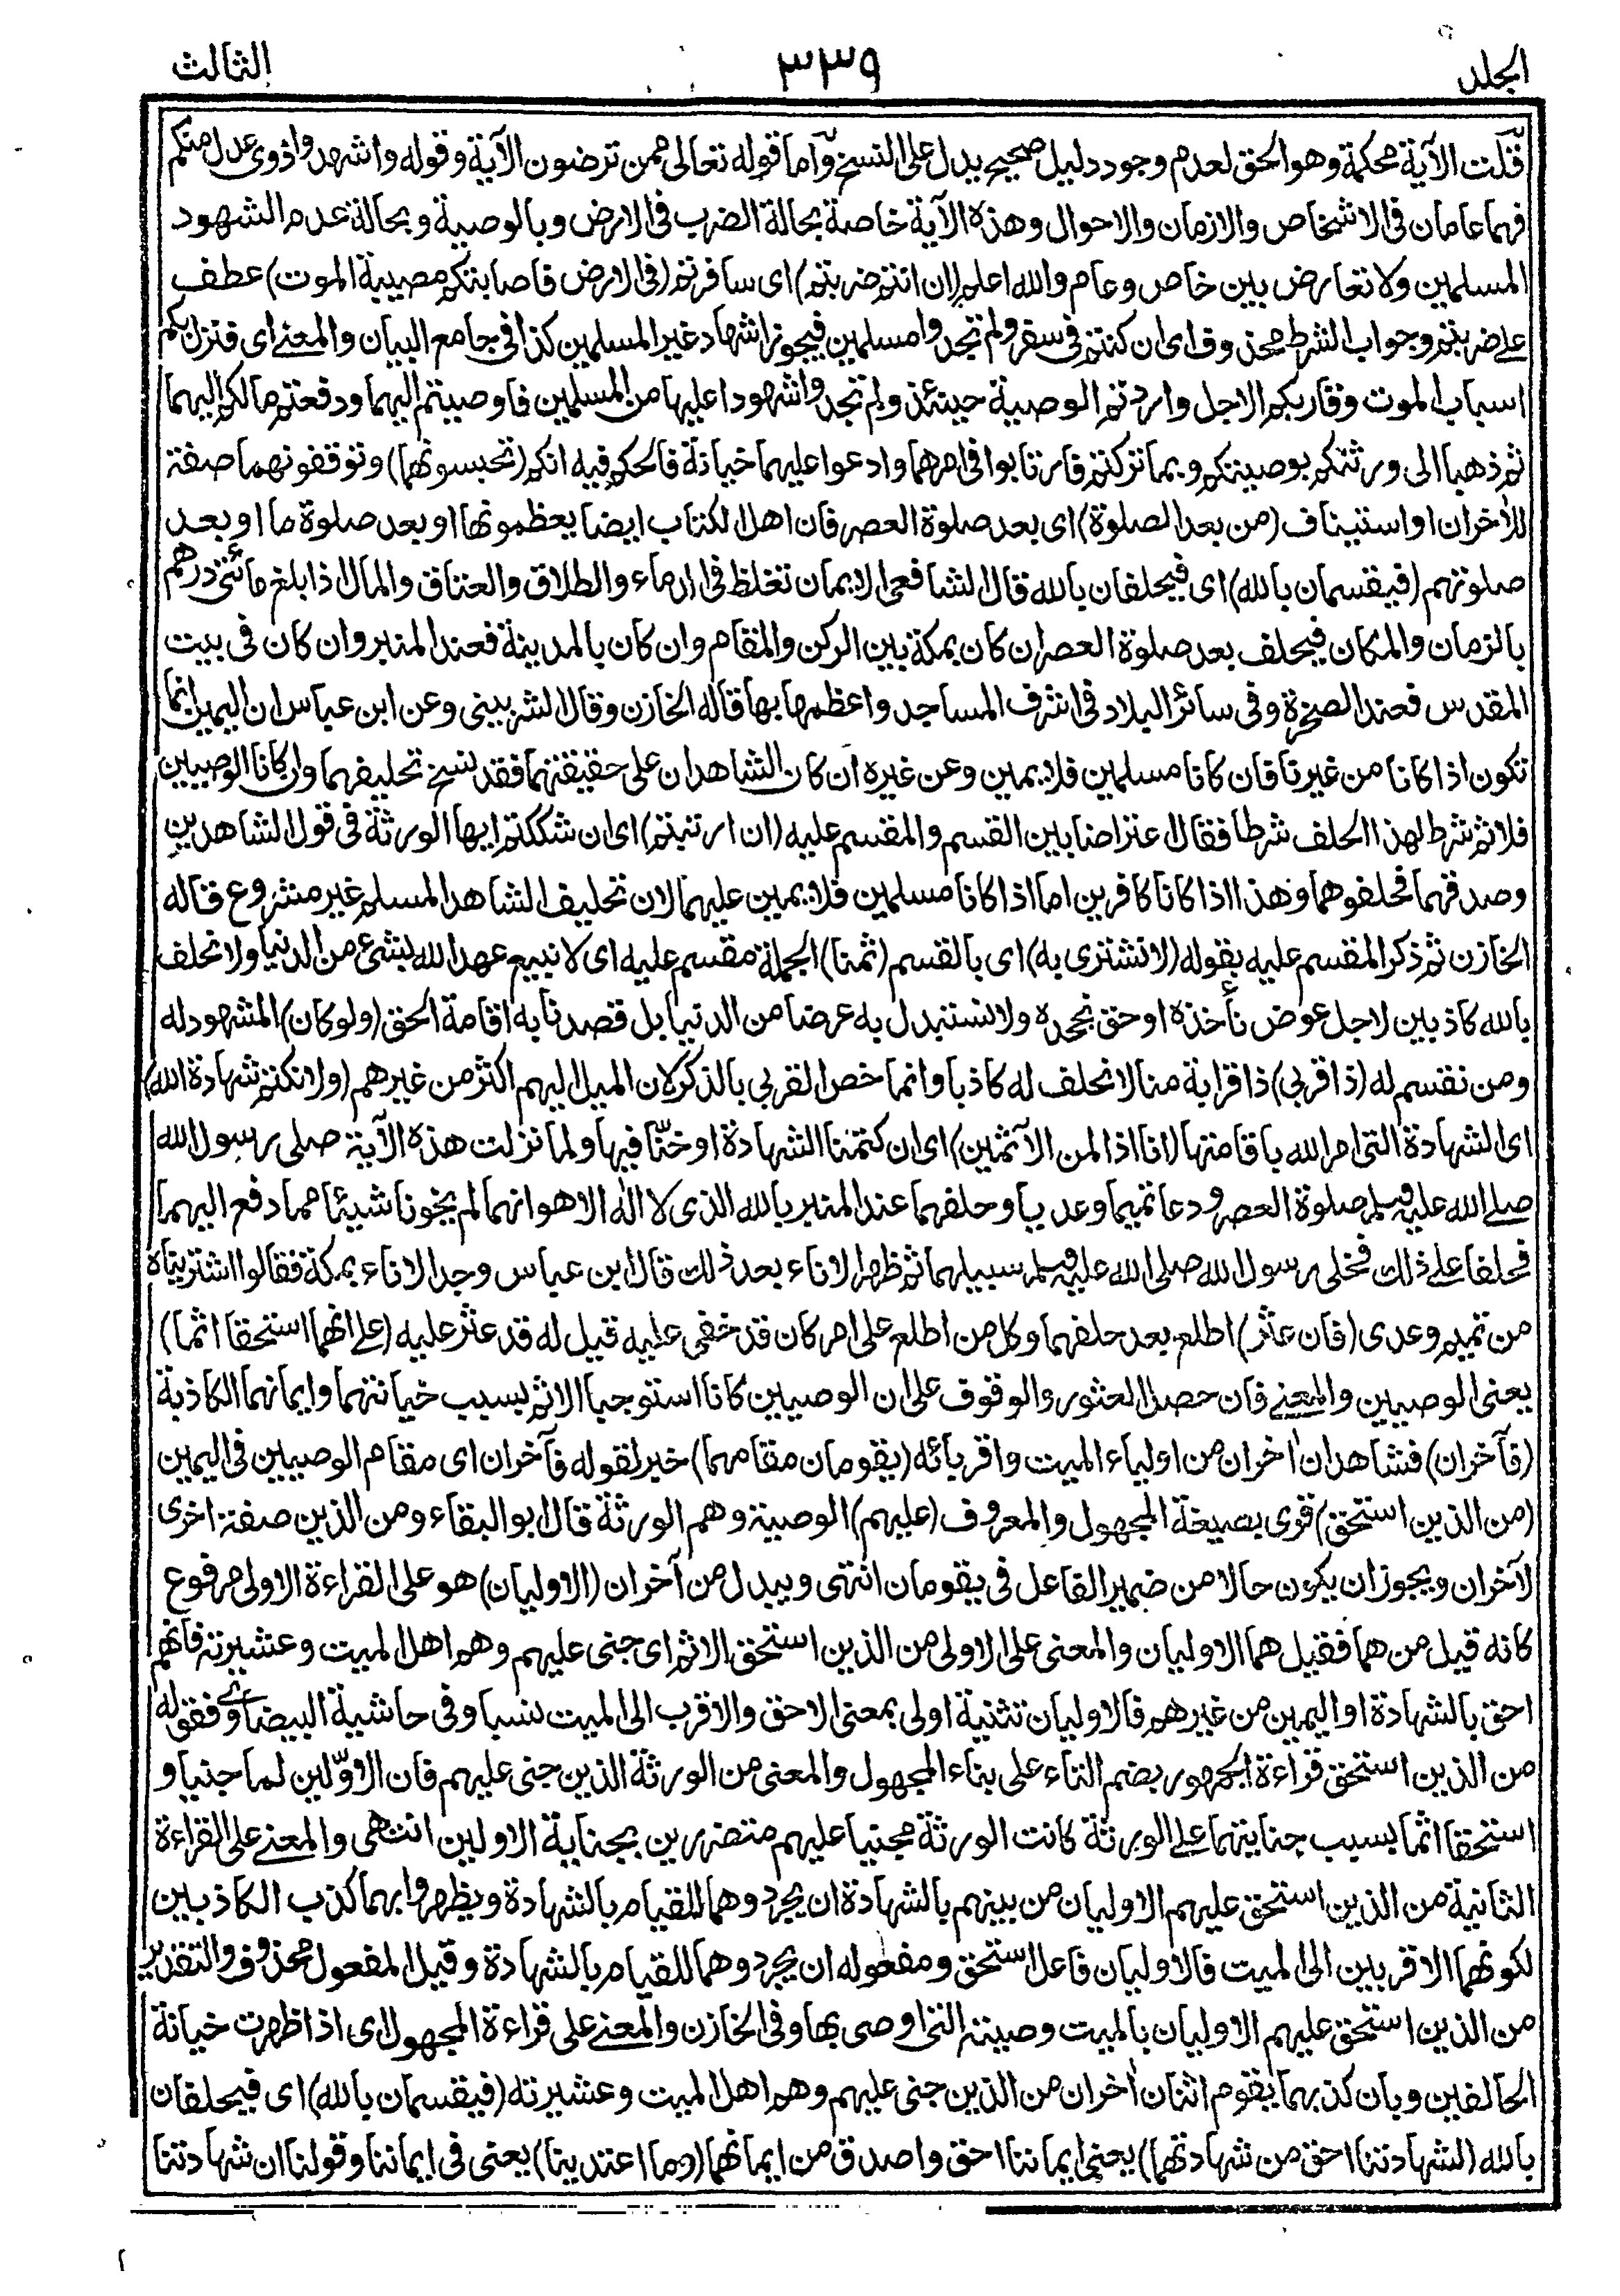 المجلد ٣٣٩ الثالث
قلت الآية محكمة وهو الحق لعدم وجود دليل صحيح يدل على النسخ وأما قوله تعالى ممن ترضون الآية وقوله واشهدوا ذوى عدل منكم
فهما عامان فى الاشخاص والازمان والاحوال وهذه الآية خاصة بحالة الضرب فى الارض وبالوصية وبحالة عدم الشهود
المسلمين ولا تعارض بين خاص وعام والله اعلم (ان انتم ضربتم) اى سافرتم (فى الارض فاصابتكم مصيبة الموت) عطف
على ضربتم وجواب الشرط محذوف اى ان كنتم فى سفر ولم تجدوا مسلمين فيجوز اشهاد غير المسلمين كذا فى جامع البيان والمعنے اى فنزل بكم
اسباب الموت وقاربكم الاجل واردتم الوصية حينئذ ولم تجدوا شهودا عليها من المسلمين فاوصيتم اليهما ودفعتم مالكم اليهما
ثم ذهبا الى ورثتكم بوصيتكم وبما تركتم فارتابوا فى امرهما وادعوا عليهما خيانة فالحكم فيه انكم (تحبسونهما) وتوقفونهما صفة
للأخران او استيناف (من بعد الصلوة) اى بعد صلوة العصر فان اهل الكتاب ايضا يعظمونها او بعد صلوة ما او بعد
صلوتهم (فيقسمان بالله) اى فيحلفان بالله قال الشافعى الايمان تغلظ فى الدماء والطلاق والعتاق والمال اذا بلغ مائتى درهم
بالزمان والمكان فيحلف بعد صلوة العصر ان كان بمكة بين الركن والمقام وان كان بالمدينة فعند المنبر وان كان فى بيت
المقدس فعند الصخرة وفى سائر البلاد فى اشرف المساجد واعظمها بها قاله الخازن وقال الشربينى وعن ابن عباس ان اليمين انما
تكون اذا كانا من غيرنا فان كانا مسلمين فلا يمين وعن غيره ان كان الشاهدان على حقيقتهما فقد نسخ تحليفهما وان كانا الوصيين
فلا ثم شرط لهذا الحلف شرطا فقال اعتراضا بين القسم والمقسم عليه (ان ارتبتم) اى ان شككتم ايها الورثة فى قول الشاهدين
وصدقهما فحلفوهما وهذا اذا كانا كافرين اما اذا كانا مسلمين فلا يمين عليهما لان تحليف الشاهد المسلم غير مشروع قاله
الخازن ثم ذكر المقسم عليه بقوله (لا نشترى به) اى بالقسم (ثمنا) الجملة مقسم عليه اى لا نبيع عهد الله بشئ من الدنيا ولا نحلف
بالله كاذبين لاجل عوض نأخذه او حق نجحده ولا نستبدل به عرضا من الدنيا بل قصدنا به اقامة الحق (ولو كان) المشهود له
ومن نقسم له (ذا قربى) ذا قرابة منا لا نحلف له كاذبا وانما خص القربى بالذكر لان الميل اليهم اكثر من غيرهم (ولا نكتم شهادة الله)
اى الشهادة التى امر الله باقامتها (انا اذا لمن الآثمين) اى ان كتمنا الشهادة او خنّا فيها ولما نزلت هذه الآية صلى رسول الله
صلے الله عليه وسلم صلوة العصر ودعا تميما وعديا وحلفهما عند المنبر بالله الذى لا اله الا هو انهما لم يخونا شيئا مما دفع اليهما
فحلفا على ذلك فخلى رسول الله صلى الله عليه وسلم سبيلهما ثم ظهر الاناء بعد ذلك قال ابن عباس وجد الاناء بمكة فقالوا اشتريناه
من تميم وعدى (فان عثر) اطلع بعد حلفهما وكل من اطلع على امر كان قد خفى عليه قيل له قد عثر عليه (على انهما استحقا اثما)
يعنى الوصيين والمعنے فان حصل العثور والوقوف على ان الوصيين كانا استوجبا الاثم بسبب خيانتهما وايمانهما الكاذبة
(فآخران) فشاهدان أخران من اولياء الميت واقربائه (يقومان مقامهما) خبر لقوله فآخران اى مقام الوصيين فى اليمين
(من الذين استحق) قرى بصيغة المجهول والمعروف (عليهم) الوصية وهم الورثة قال ابو البقاء ومن الذين صفة اخرى
لآخران ويجوز ان يكون حالا من ضمير الفاعل فى يقومان انتهى ويبدل من آخران (الاوليان) هو على القراءة الاولى مرفوع
كانه قيل من هما فقيل هما الاوليان والمعنى على الاولى من الذين استحق الاثم اى جنى عليهم وهم اهل الميت وعشيرته فانهم
احق بالشهادة او اليمين من غيرهم فالاوليان تثنية اولى بمعنى الاحق والاقرب الى الميت نسبا وفى حاشية البيضاوى فقوله
من الذين استحق قراءة الجمهور بضم التاء على بناء المجهول والمعنى من الورثة الذين جنى عليهم فان الاوّلين لما جنيا و
استحقا اثما بسبب جنايتهما على الورثة كانت الورثة مجنيا عليهم متضررين بجناية الاولين انتهى والمعنے على القراءة
الثانية من الذين استحق عليهم الاوليان من بينهم بالشهادة ان يجردوهما للقيام بالشهادة ويظهروا بهما كذب الكاذبين
لكونهما الاقربين الى الميت فالاوليان فاعل استحق ومفعوله ان يجردوهما للقيام بالشهادة وقيل المفعول محذوف والتقدير
من الذين استحق عليهم الاوليان بالميت وصيته التى اوصى بها وفى الخازن والمعنے على قراءة المجهول اى اذا ظهرت خيانة
الحالفين وبان كذبهما يقوم اثنان أخران من الذين جنى عليهم وهم اهل الميت وعشيرته (فيقسمان بالله) اى فيحلفان
بالله (لشهادتنا احق من شهادتهما) يعنى ايماننا احق واصدق من ايمانهما (وما اعتدينا) يعنى فى ايماننا وقولنا ان شهادتنا